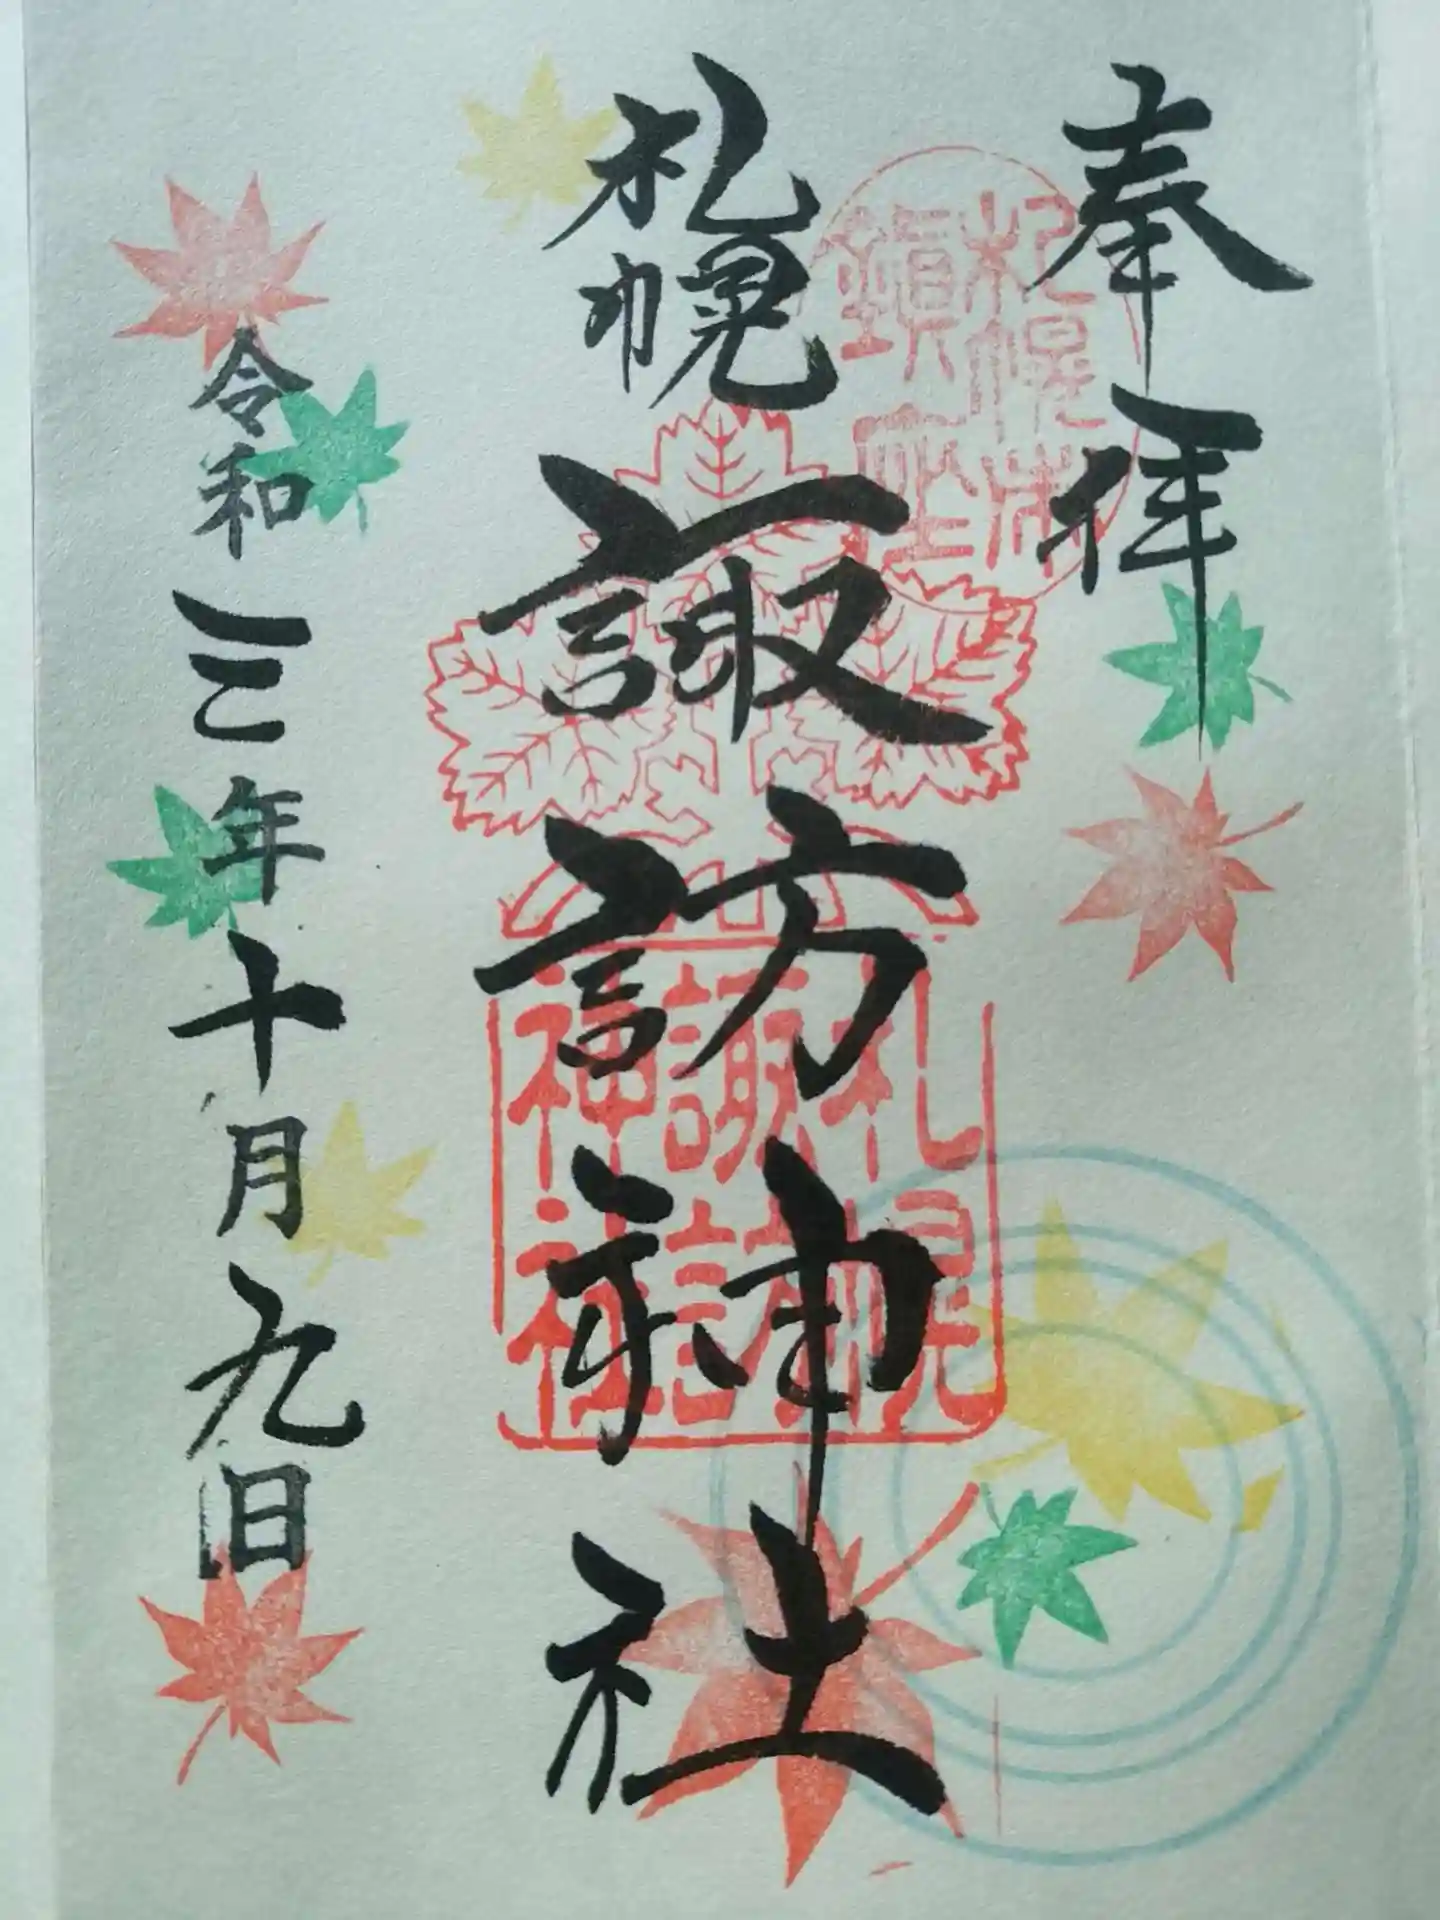 奉拝
札幌
諏訪神社
令和三年十月九日
札幌市
鎮座
札幌
諏訪
神社